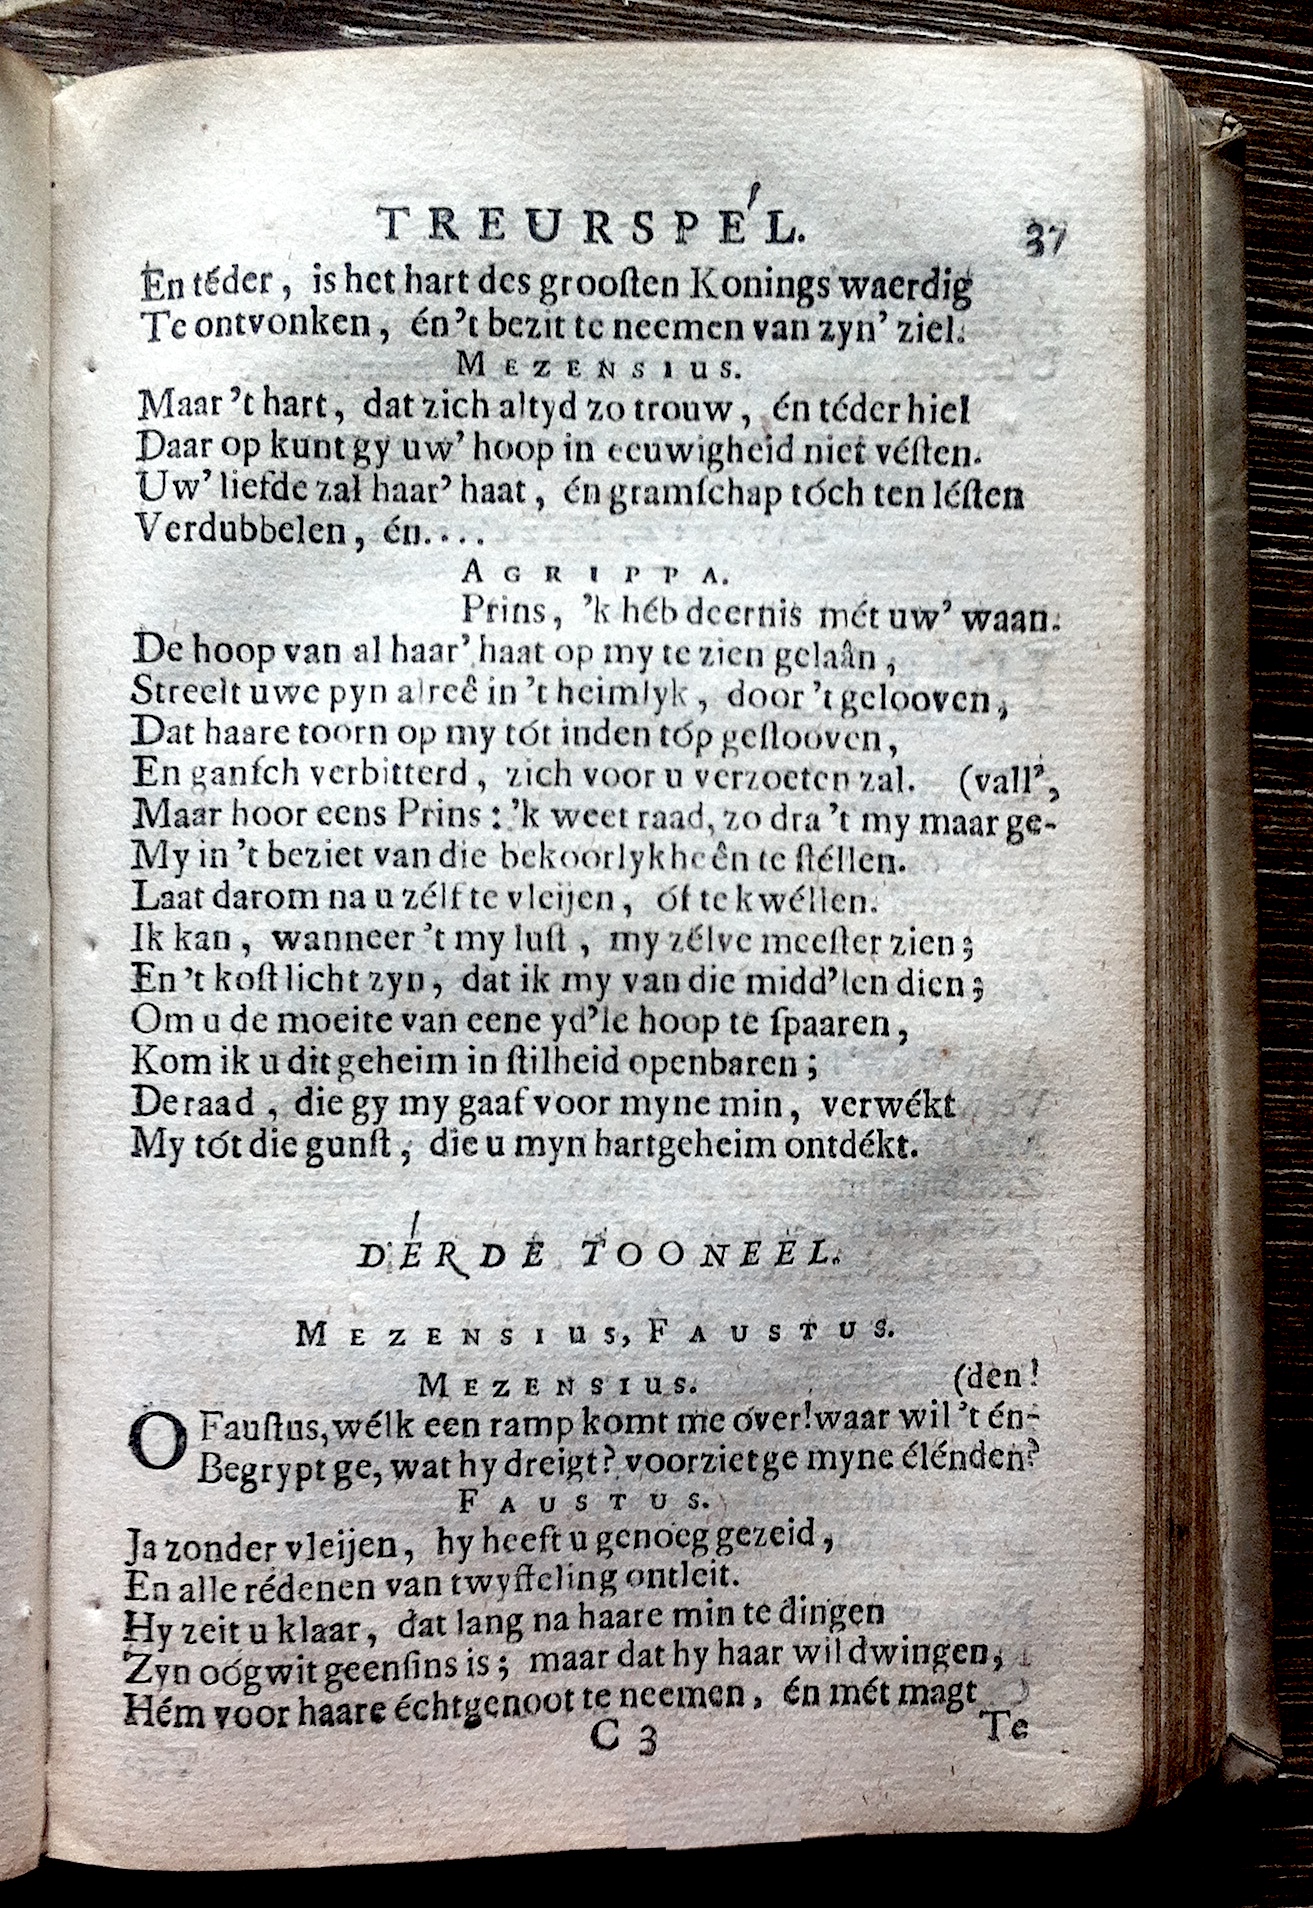 TREURSPÉL. 37
En téder, is het hart des grooſten Konings waerdig
Te ontvonken, én 't bezit te neemen van zyn' ziel.
MEZENSIUS.
Maar 't hart, dat zich altyd zo trouw, én téder hiel
Daar op kunt gy uw' hoop in eeuwigheid niet véſten.
Uw' liefde zal haar' haat, én gramſchap tóch ten léſten
Verdubbelen, én....
AGRIPPA.
Prins, 'k héb deernis mét uw' waan.
De hoop van al haar' haat op my te zien gelaân,
Streelt uwe pyn alreê in 't heimlyk, door 't gelooven,
Dat haare toorn op my tót inden tóp geſlooven,
En ganſch verbitterd, zich voor u verzoeten zal. (vall',
Maar hoor eens Prins: 'k weet raad, zo dra 't my maar ge-
My in 't beziet van die bekoorlykheên te ſtéllen.
Laat darom na u zélf te vleijen, óf te kwéllen.
Ik kan, wanneer 't my luſt, my zélve meeſter zien;
En 't koſt licht zyn, dat ik my van die midd'len dien;
Om u de moeite van eene yd'le hoop te ſpaaren,
Kom ik u dit geheim in ſtilheid openbaren;
De raad, die gy my gaaf voor myne min, verwékt
My tót die gunſt, die u myn hartgeheim ontdékt.
DÉRDE TOONEEL.
MEZENSIUS, FAUSTUS.
MEZENSIUS. (den!
O Fauſtus, wélk een ramp komt me over! waar wil 't én-
Begrypt ge, wat hy dreigt? voorziet ge myne élénden?
FAUSTUS.
Ja zonder vleijen, hy heeft u genoeg gezeid,
En alle rédenen van twyffeling ontleit.
Hy zeit u klaar, dat lang na haare min te dingen
Zyn oógwit geenſins is; maar dat hy haar wil dwingen,
Hém voor haare échtgenoot te neemen, én mét magt
C 3 Te